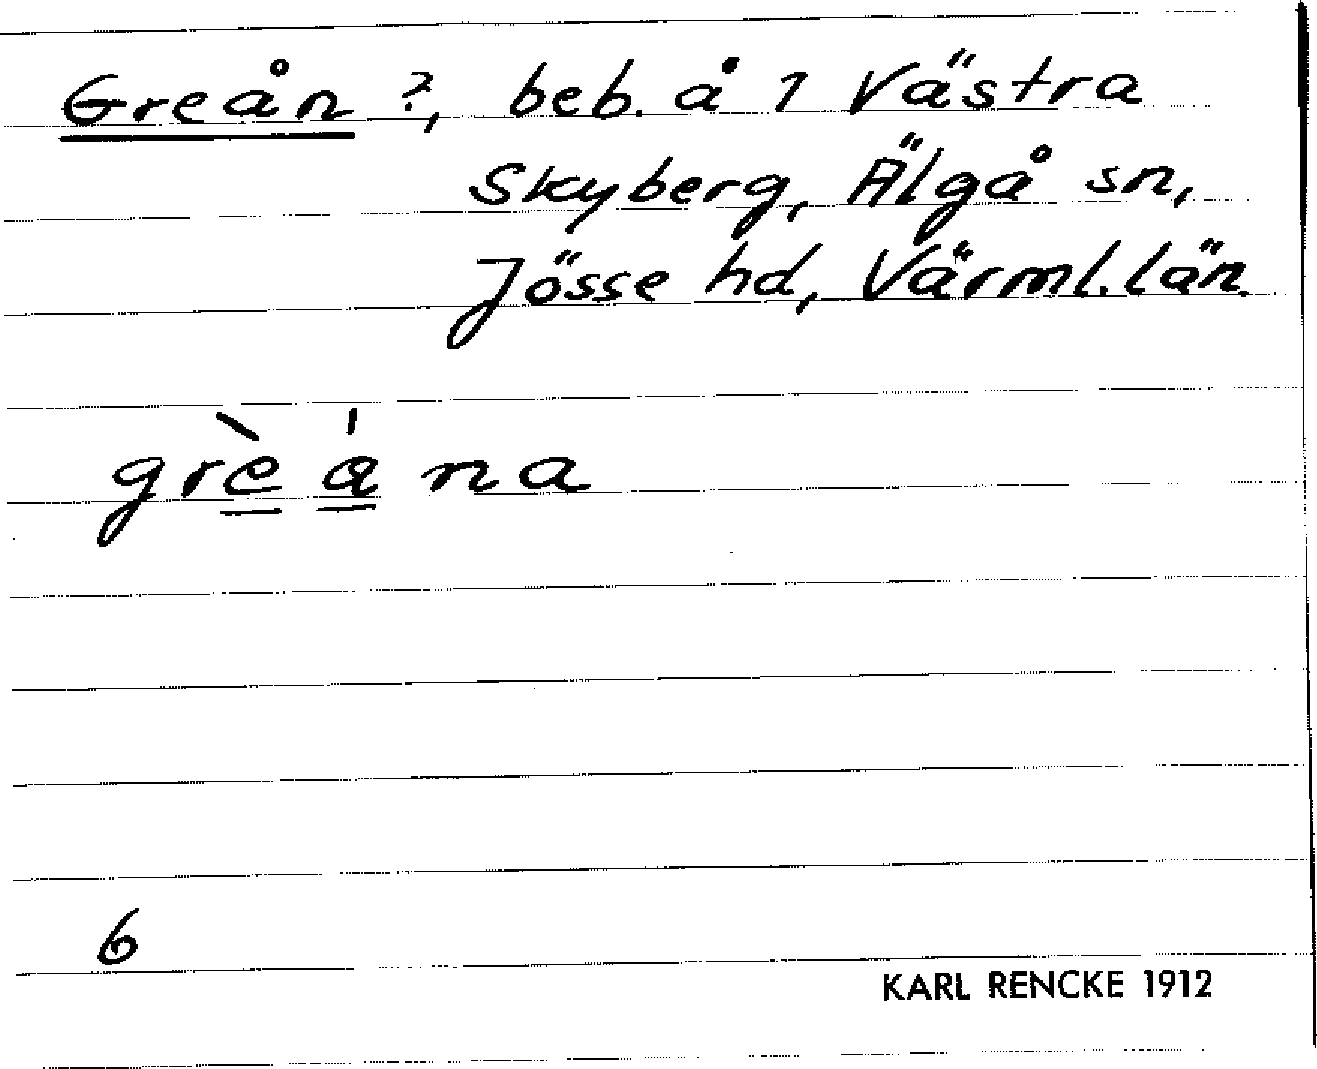 Greån ?, beb. å 1 Västra
Skyberg, Älgå sn,
Jösse hd, Värml. län.
grèána
6
KARL RENCKE 1912